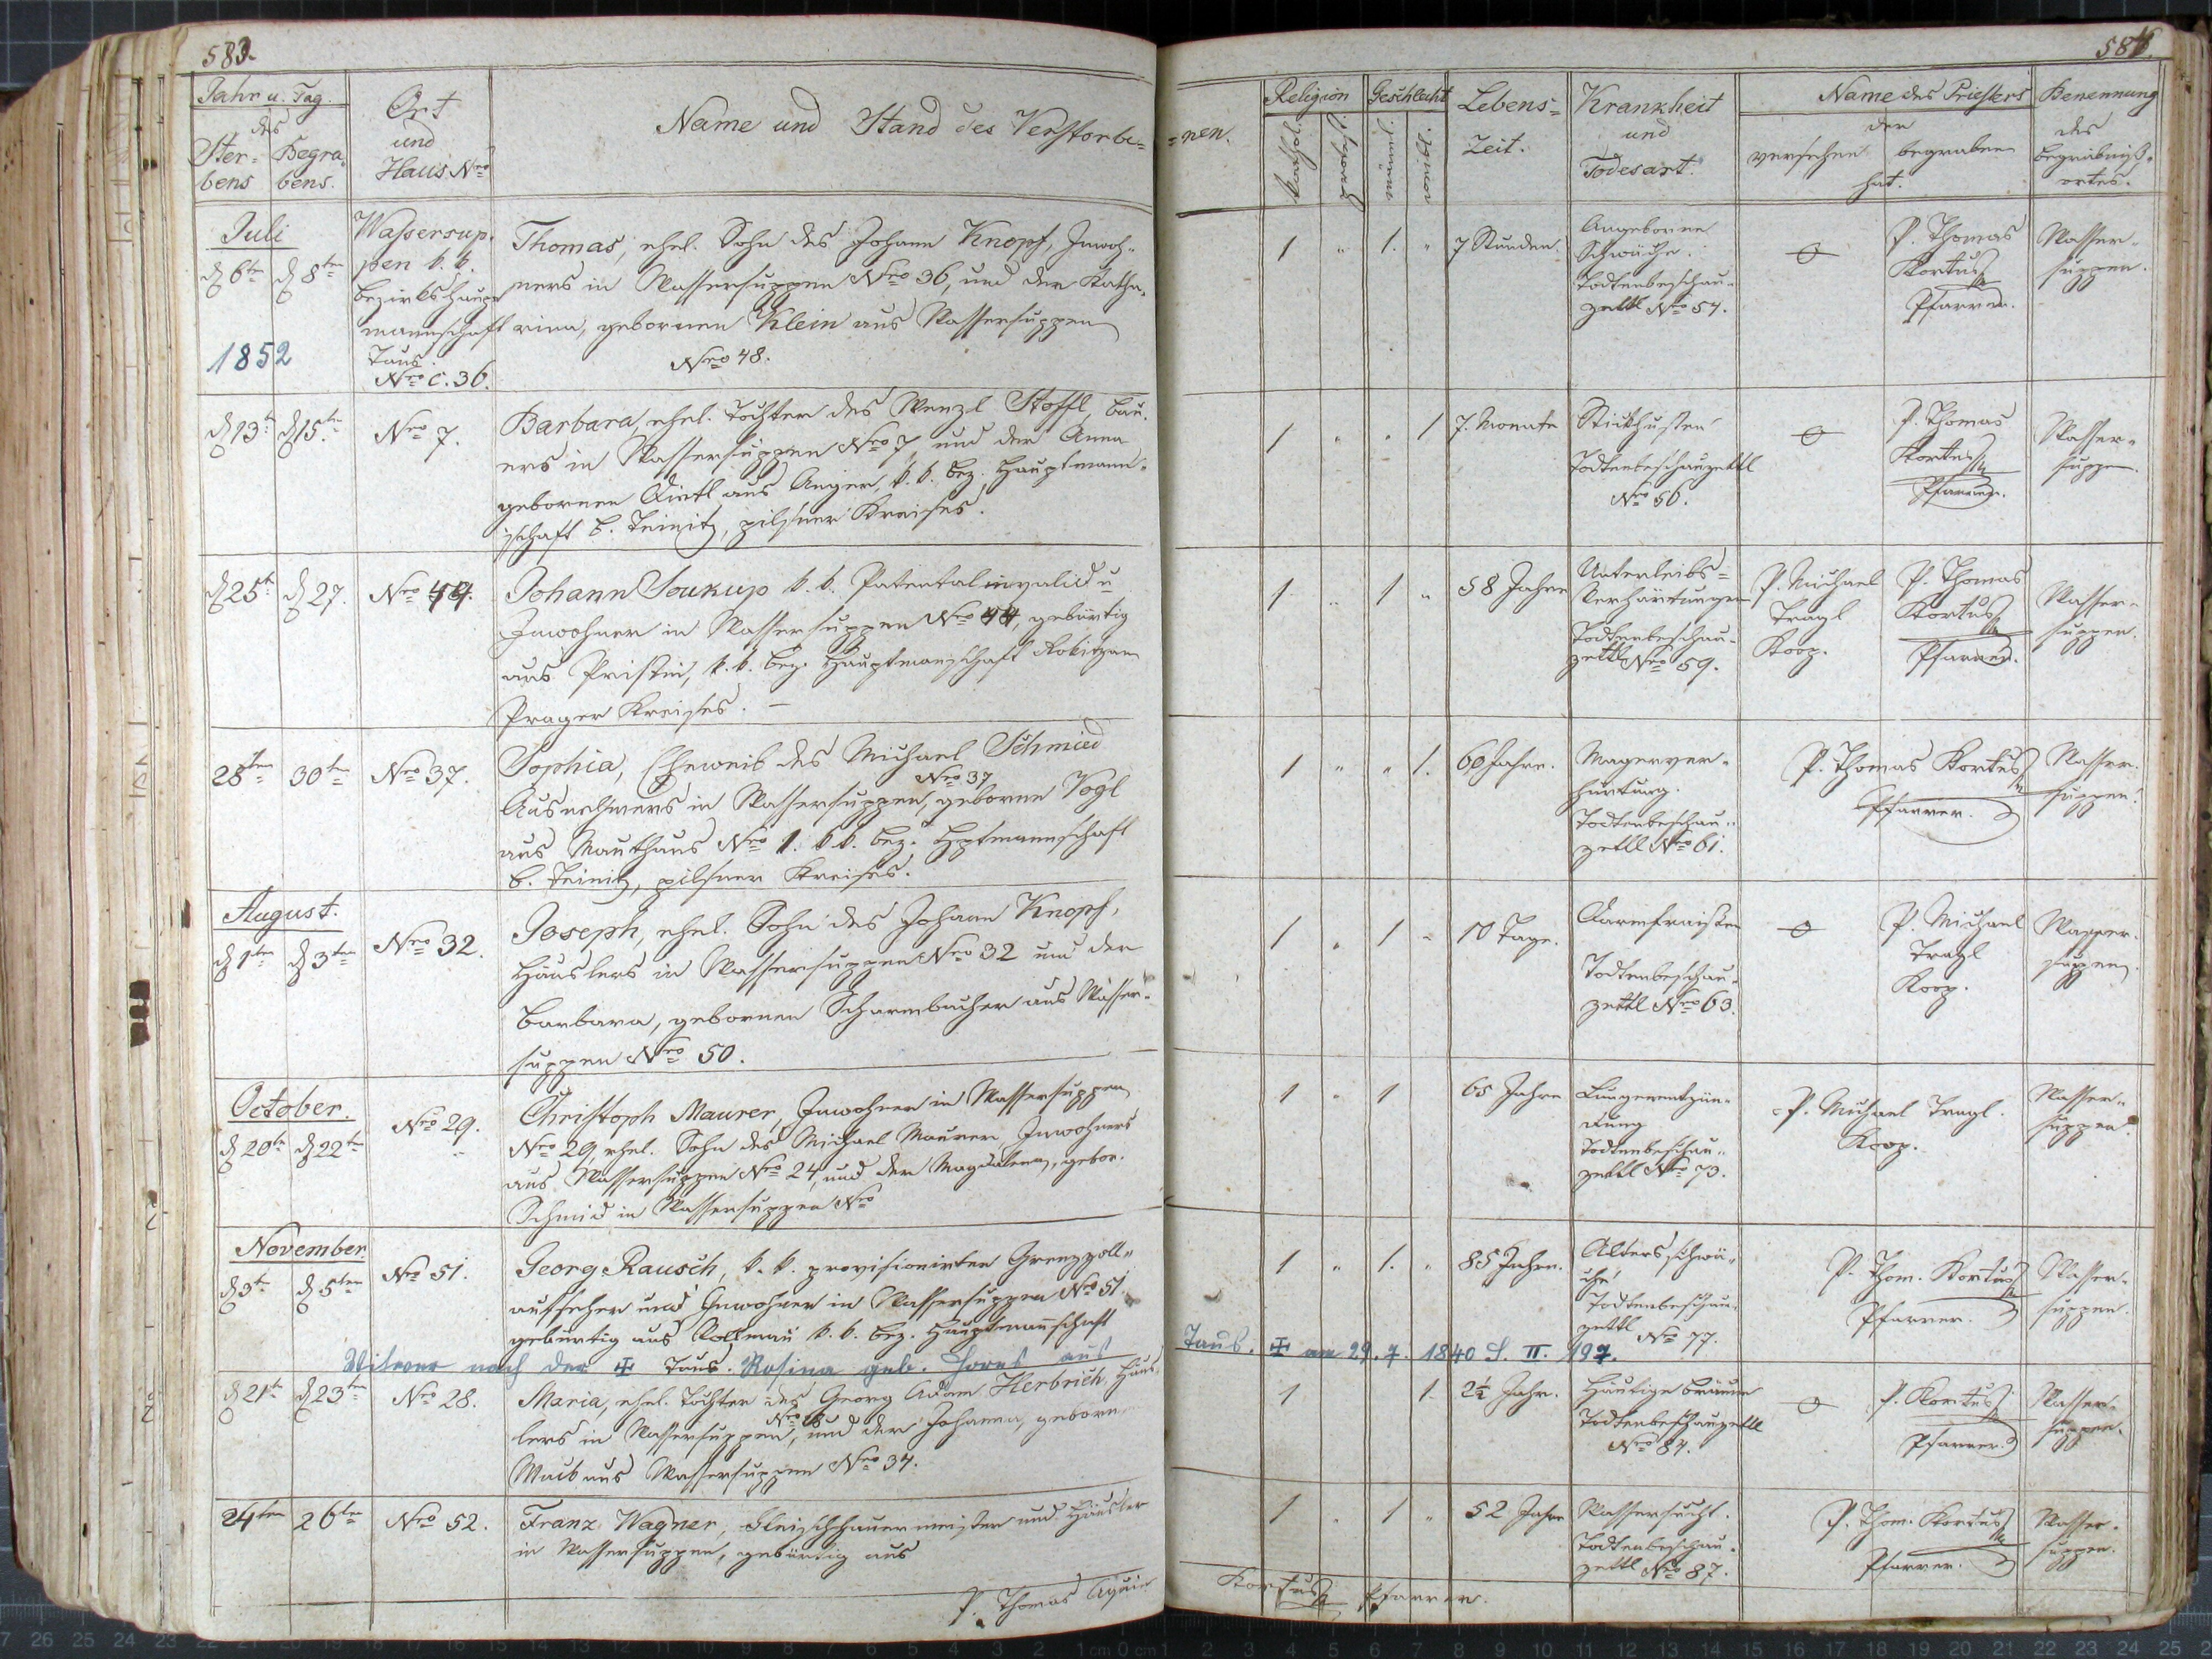 583.
Jahr u. Tag
des
Ster= Begra
bens bens.
Ort
und
Haus Nro
Name und Stand des Verstorbe=
Juli
d 6ten d 8ten
1852
Wassersup.
pen k. k.
Bezirkshaupt
mannschaft
Taus.
Nro C. 36.
Thomas, ehel. Sohn des Johann Knopf, Inwoh-
ners in Wassersuppen Nro 36, und der Katha-
rina, gebornen Klein aus Wassersuppen
Nro 48.
d 13t d 15ten Nro 7.
Barbara, ehel. Tochter des Wenzl Stoffl, Bau-
ers in Wassersuppen Nro 7 und der Anna
gebornen aus Anger, k. k. Bez. Hauptmann-
schaft B. Teinitz, pilsner Kreises.
d 25t d 27. Nro 44.
Johann Soukup k. k. Patentalinvalid u
Inwohner in Wassersuppen Nro 44, gebürtig
aus k. k. Bez. Hauptmanschaft Rokitzan
Prager Kreises. –
28ten 30ten Nro 37.
Sophia, Eheweib des Michael Schmied
Nro 37
Ausnehmers in Wassersuppen, geborne Vogl
aus Mauthaus Nro 1. k. k. Bez. Hptmannschaft
B. Teinitz, pilsner Kreises.
August.
d 1ten d 3ten Nro 32.
Joseph, ehel. Sohn des Johann Knopf,
Häuslers in Wassersuppen Nro 32 und der
Barbara, gebornen Scharnbacher aus Wasser-
suppen Nro 50.
October.
d 20tn d 22tn Nro 29.
Christoph Maurer, Inwohner in Wassersuppen
Nro 29, ehel. Sohn des Michael Maurer Inwohners
aus Wassersuppen Nro 24, und der Magdalena, gebor.
Schmid in Wassersuppen Nro
November
d 3tn d 5ten Nro 51.
Georg Rausch, k. k. provisionirter Grenzzoll-
aufseher und Inwohner in Wassersuppen Nro 51.
gebürtig aus Vollmau k. k. Bez. Hauptmanschaft
Taus.
Witwer nach der ✠ Rosina geb. aus
d 21tn d 23ten Nro 28.
Maria, ehel. Tochter des Georg Adam Herbrich, Häus-
Nro 28
lers in Wassersuppen, und der Johanna, geborn
aus Wassersuppen Nro 34.
24ten 26ten Nro 52.
Franz Wagner, Fleischhauermeister und Häusler
in Wassersuppen, gebürtig aus
P. Thomas Aquin
584
=nen.
Religion
kathol.
Geschlecht
männl.
weibl.
Lebens=
Zeit.
Krankheit
und
Todesart.
Name des Priesters
der
versehen begraben
hat.
Benennung
des
Begräbniß-
ortes.
1 " 1. " 7 Stunden.
Angeborne
Schwäche.
Todtenbeschau-
zettl Nro 54.
P. Thomas
Kortus
Pfarrer.
Wasser-
suppen.
1 " " 1 7. Monate
Stickhusten
Todtenbeschauzettl
Nro 56.
P. Thomas
Kortus
Pfarrer.
Wasser-
suppen.
1 " 1 " 58 Jahre
Unterleibs=
Verhärtungen
Todtenbeschau-
zettl Nro 59.
P. Michael
Tragl
Koop.
P. Thomas
Kortus
Pfarrer.
Wasser-
suppen.
1 " " 1. 60 Jahre.
Magenver-
härtung.
Todtenbeschau-
zettl Nro 61.
P. Thomas Kortus
Pfarrer.
Wasser-
suppen.
1 " 1 " 10 Tage.
Darmfraisen
Todtenbeschau-
zettl Nro 63.
P. Michael
Tragl
Koop.
Wasser-
suppen.
1 " 1 65 Jahre
Lungenentzün-
dung
Todtenbeschau-
zettl Nro 73.
P. Michael Tragl.
Koop.
Wasser-
suppen.
1 " 1. " 85 Jahre.
Altersschwä-
che
Todtenbeschau-
zettl
Nro 77.
P. Thom. Kortus
Pfarrer.
Wasser-
suppen.
Taus. ✠ am 29. 7. 1840 S. II. 197.
1 1 2½ Jahr.
Häutige Bräune
Todtenbeschauzettl
Nro 84.
P. Kortus
Pfarrer.
Wasser-
suppen.
1 " 1 " 52 Jahre
Wassersucht.
Todtenbeschau-
zettl Nro 87.
P. Thom. Kortus
Pfarrer.
Wasser-
suppen.
Kortus Pfarrer.